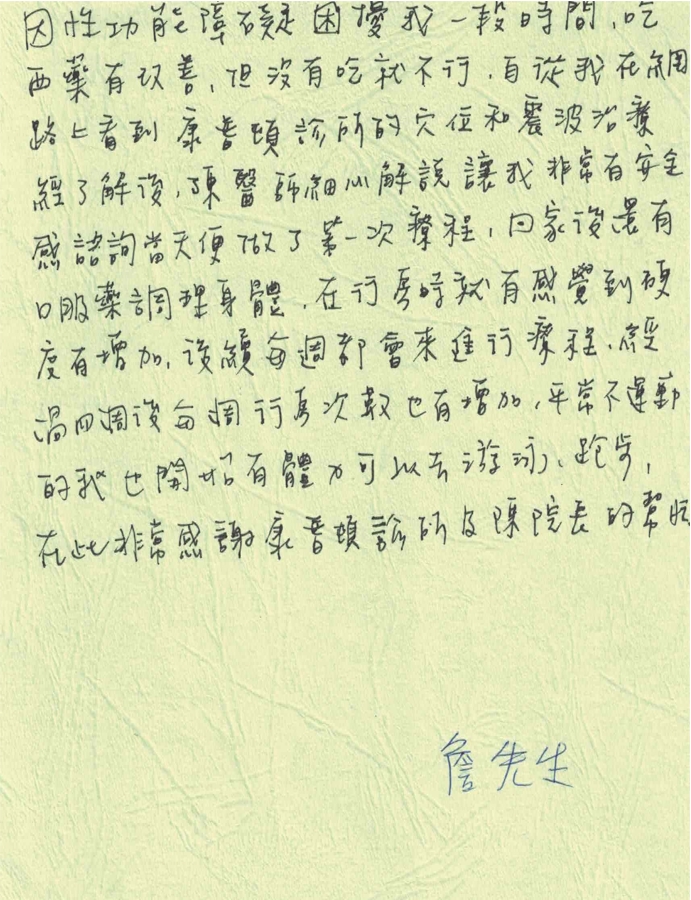 因性功能障礙困擾我一段時間,吃
西藥有改善,但沒有吃就不行,自從我在網
路上看到康普頓診所的穴位和震波治療
經了解後,陳醫師細心解說讓我非常有安全
感諮詢當天便做了第一次療程,回家後還有
口服藥調理身體,在行房時就有感覺到硬
度有增加,後續每週都會來進行療程,經
過四週後每週行房次數也有增加,平常不運動
的我也開始有體力可以去游泳、跑步,
在此非常感謝康普頓診所及陳院長的幫助
詹先生